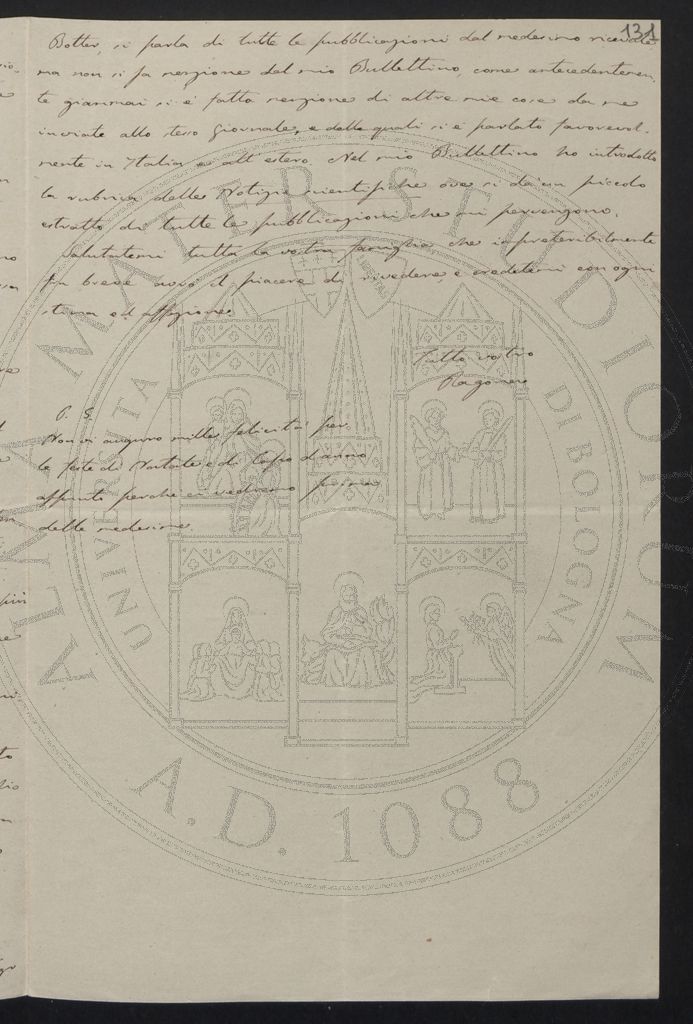 131
Botter, si parla di tutte le pubblicazioni dal medesimo ricevute
ma non si fa menzione del mio Bullettino, come antecedentemen
te giammai si è fatta menzione di altre mie cose da me
inviate allo stesso Giornale, e delle quali si è parlato favorevol-
mente in Italia e all'estero. Nel mio Bullettino ho introdotto
la rubrica delle Notizie scientifiche ove si dà un piccolo
estratto di tutte le pubblicazioni che mi pervengono.
Salutatemi tutta la vostra famiglia, che impreteribilmente
fra breve avrò il piacere di rivedere, e credetemi con ogni
stima ed affezione
Tutto vostro
Ragona
P. S.
Non vi auguro mille felicità per
le feste di Natale e di Capo d'anno
appunto perche ci vedremo prima
delle medesime.
ALMA MATER STUDIORUM
UNIVERSITÀ DI BOLOGNA
A.D. 1088